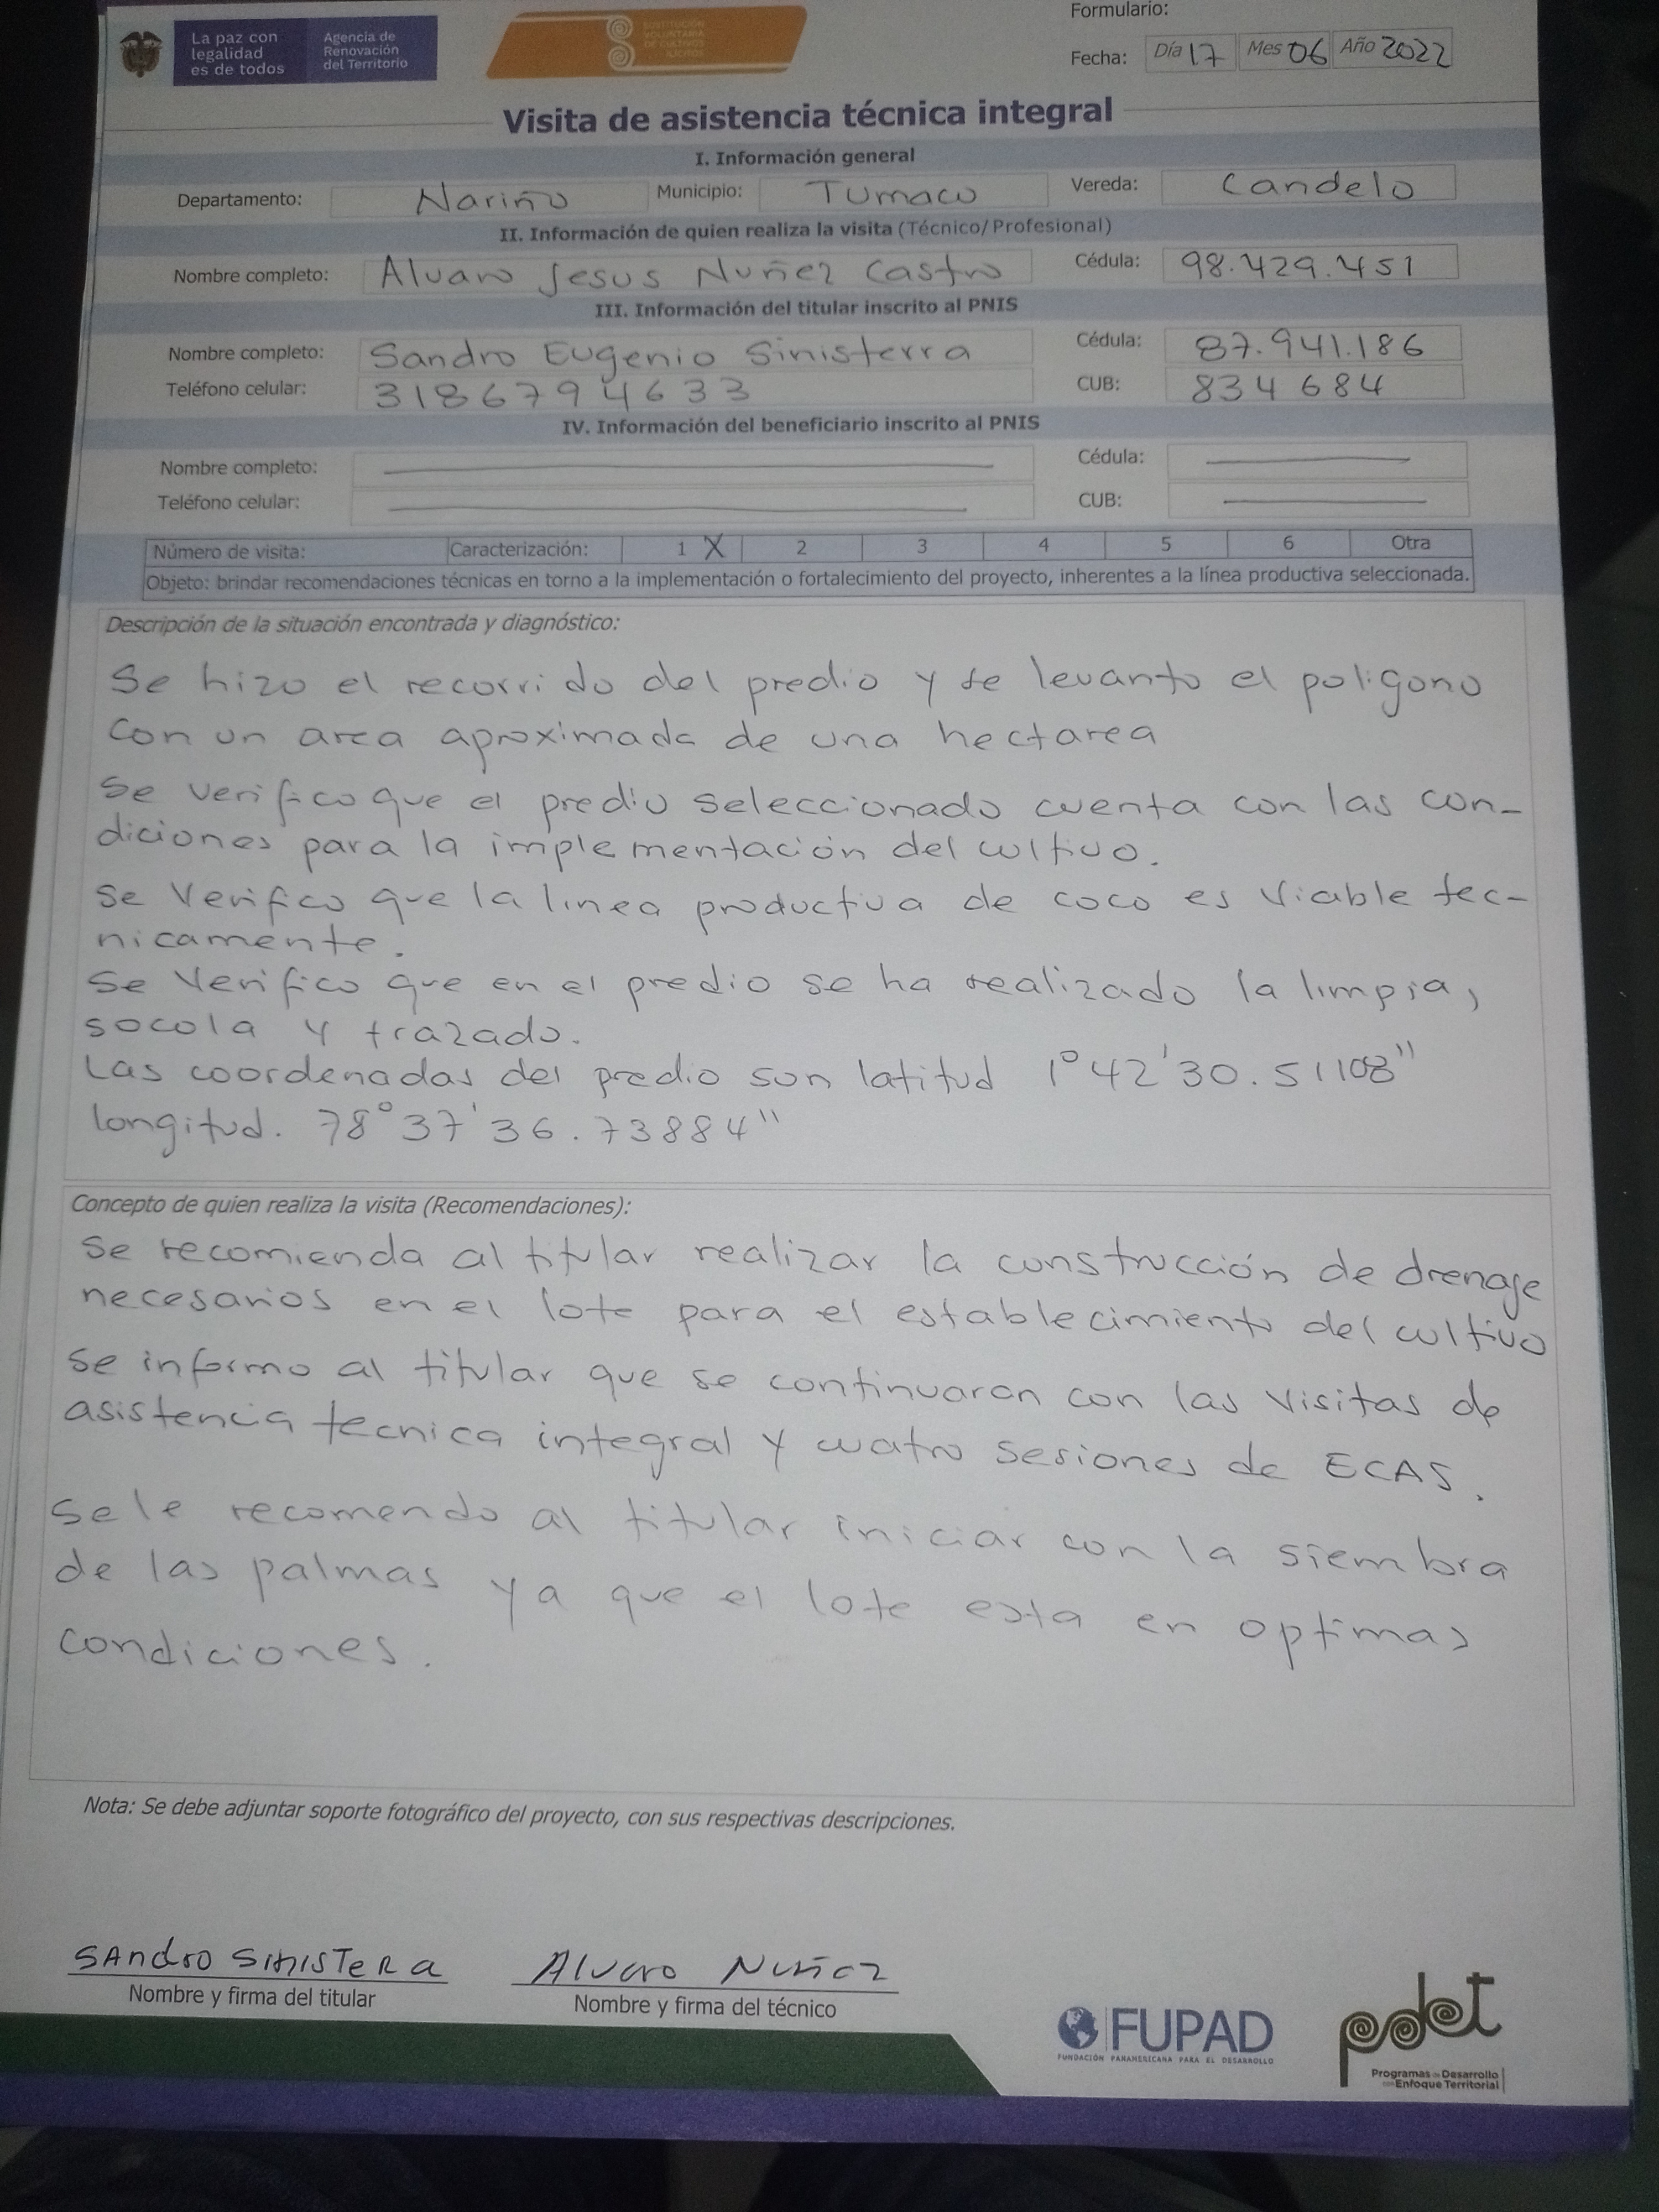 La paz con
legalidad
es de todos
Agencia de
Renovación
del Territorio
SUSTITUCIÓN
VOLUNTARIA
DE CULTIVOS
ILÍCITOS
Formulario:
Fecha: Día 17 Mes 06 Año 2022
Visita de asistencia técnica integral
I. Información general
Departamento: Nariño Municipio: Tumaco Vereda: Candelo
II. Información de quien realiza la visita (Técnico/Profesional)
Nombre completo: Alvaro Jesus Nuñez Castro Cédula: 98.429.451
III. Información del titular inscrito al PNIS
Nombre completo: Sandro Eugenio Sinisterra Cédula: 87.941.186
Teléfono celular: 3186794633 CUB: 834684
IV. Información del beneficiario inscrito al PNIS
Nombre completo: Cédula:
Teléfono celular: CUB:
Número de visita: Caracterización: 1 X 2 3 4 5 6 Otra
Objeto: brindar recomendaciones técnicas en torno a la implementación o fortalecimiento del proyecto, inherentes a la línea productiva seleccionada.
Descripción de la situación encontrada y diagnóstico:
Se hizo el recorrido del predio y se levanto el poligono
con un area aproximada de una hectarea
Se verifico que el predio seleccionado cuenta con las con-
diciones para la implementación del cultivo.
Se verifico que la linea productiva de coco es viable tec-
nicamente.
Se verifico que en el predio se ha realizado la limpia,
socola y trazado.
Las coordenadas del predio son latitud 1°42'30.51108"
longitud. 78°37'36.73884"
Concepto de quien realiza la visita (Recomendaciones):
Se recomienda al titular realizar la construcción de drenaje
necesarios en el lote para el establecimiento del cultivo
Se informo al titular que se continuaran con las visitas de
asistencia tecnica integral y cuatro sesiones de ECAS.
Se le recomendo al titular iniciar con la siembra
de las palmas ya que el lote esta en optimas
condiciones.
Nota: Se debe adjuntar soporte fotográfico del proyecto, con sus respectivas descripciones.
SAndro SinisTeRa
Nombre y firma del titular
Alvaro Nuñez
Nombre y firma del técnico
FUPAD
FUNDACIÓN PANAMERICANA PARA EL DESARROLLO
pdet
Programas de Desarrollo
con Enfoque Territorial